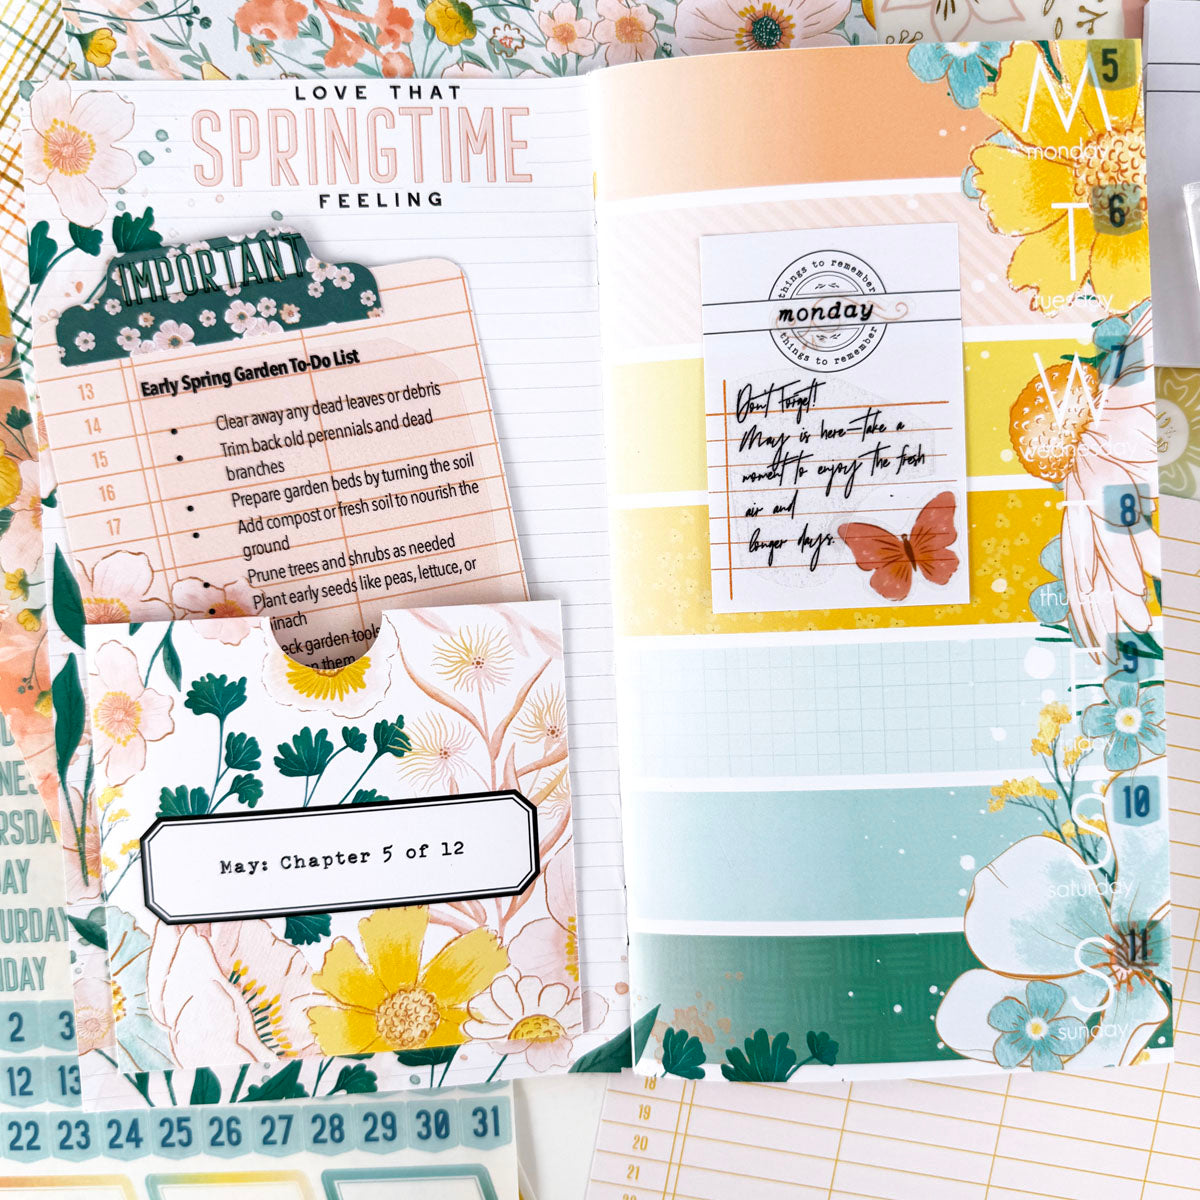 LOVE THAT
SPRINGTIME
FEELING
IMPORTANT
13
14
15
16
17
Early Spring Garden To-Do List
• Clear away any dead leaves or debris
• Trim back old perennials and dead
branches
• Prepare garden beds by turning the soil
• Add compost or fresh soil to nourish the
ground
• Prune trees and shrubs as needed
• Plant early seeds like peas, lettuce, or
inach
eck garden tools
n them
May: Chapter 5 of 12
things to remember
monday
things to remember
Don't Forget!
May is here—take a
moment to enjoy the fresh
air and
longer days.
M 5
monday
T 6
tuesday
W 7
wednesday
T 8
thursday
F 9
friday
S 10
saturday
S 11
sunday
NES
RSDA
AY
TURDAY
NDAY
2 3
12 13
22 23 24 25 26 27 28 29 30 31
18
19
20
21